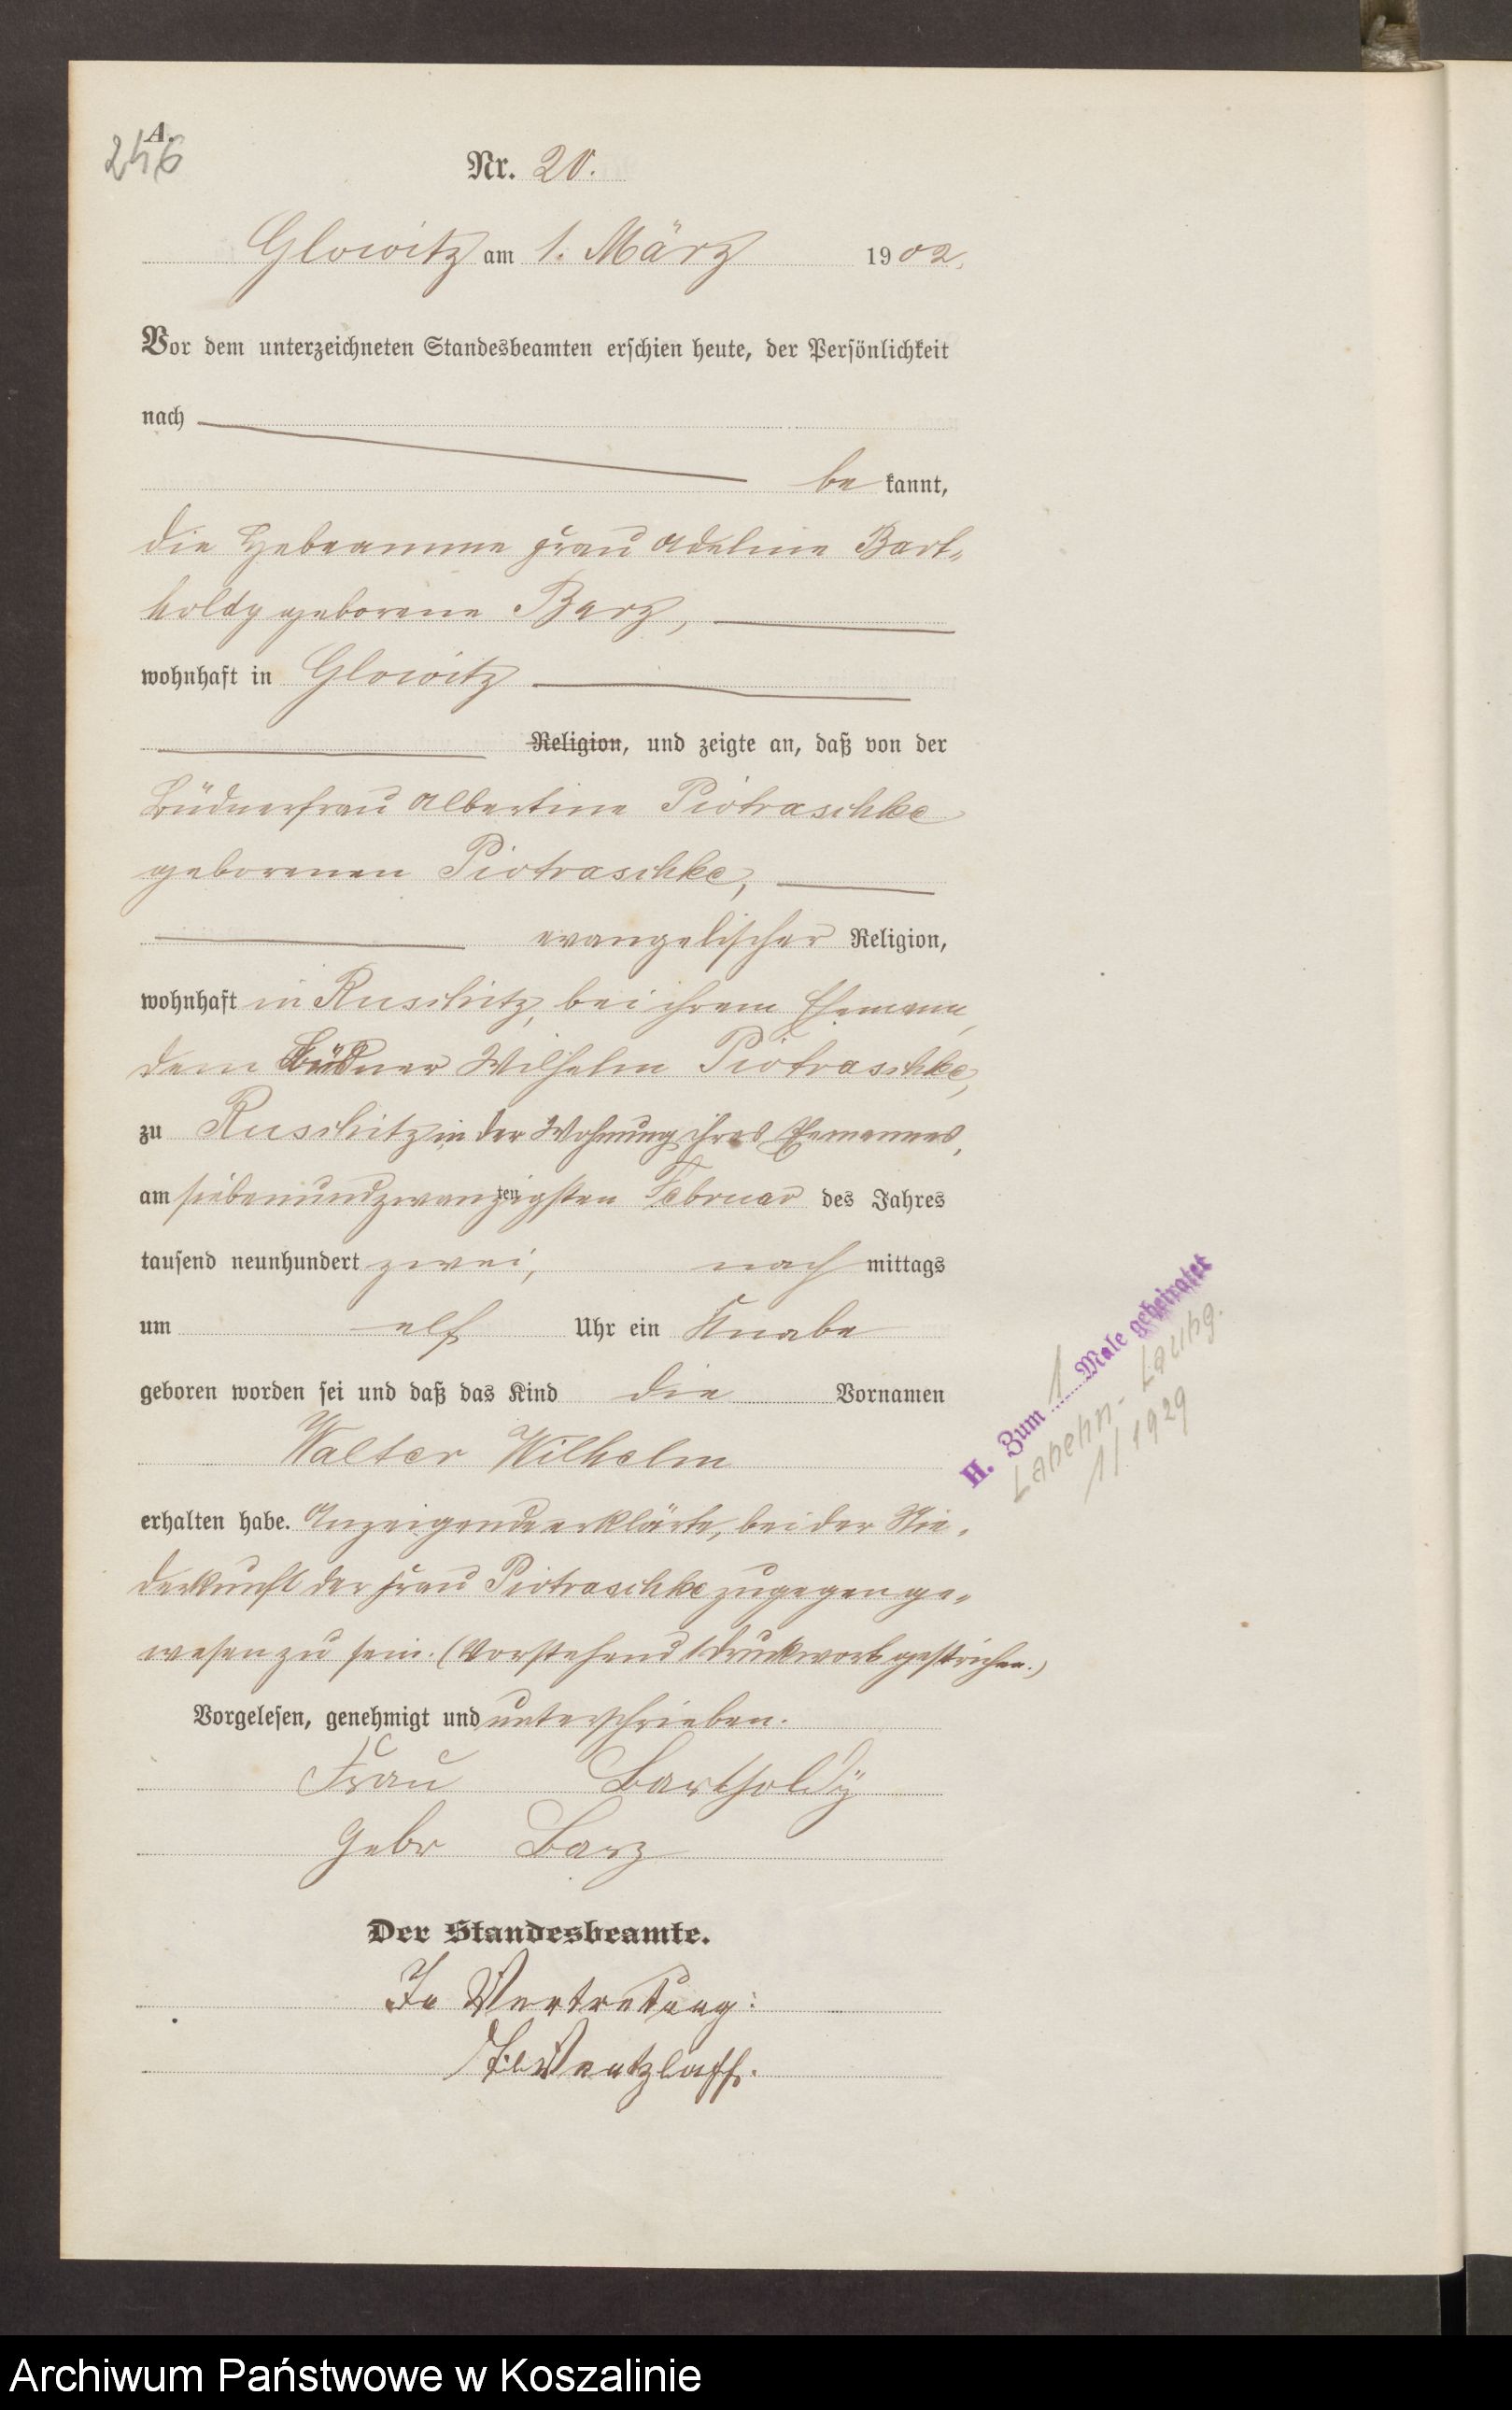 A.
246
Nr. 20.
Glowitz am 1. März 1902.
Vor dem unterzeichneten Standesbeamten erschien heute, der Persönlichkeit
nach
be kannt,
die Hebeamme Frau Adeline Bart-
holdy geborene Barz,
wohnhaft in Glowitz
Religion, und zeigte an, daß von der
Büdnerfrau Albertine Piotraschke
geborenen Piotraschke,
evangelischer Religion,
wohnhaft in Ruschitz, bei ihrem Ehemann,
dem Büdner Wilhelm Piotraschke,
zu Ruschitz in der Wohnung ihres Ehemannes,
am siebenundzwanzigsten Februar des Jahres
tausend neunhundert zwei, nach mittags
um elf Uhr ein Knabe
geboren worden sei und daß das Kind die Vornamen
Walter Wilhelm
erhalten habe. Anzeigende erklärte, bei der Nie-
derkunft der Frau Piotraschke zugegen ge-
wesen zu sein. (Vorstehend 1 Druckwort gestrichen.)
Vorgelesen, genehmigt und unterschrieben.
Frau Bartholdÿ
Gebr Barz
Der Standesbeamte.
In Vertretung:
Wentzlaff.
H. Zum 1 Male geheiratet
Labehn- Laubg.
1/1929
Archiwum Państwowe w Koszalinie